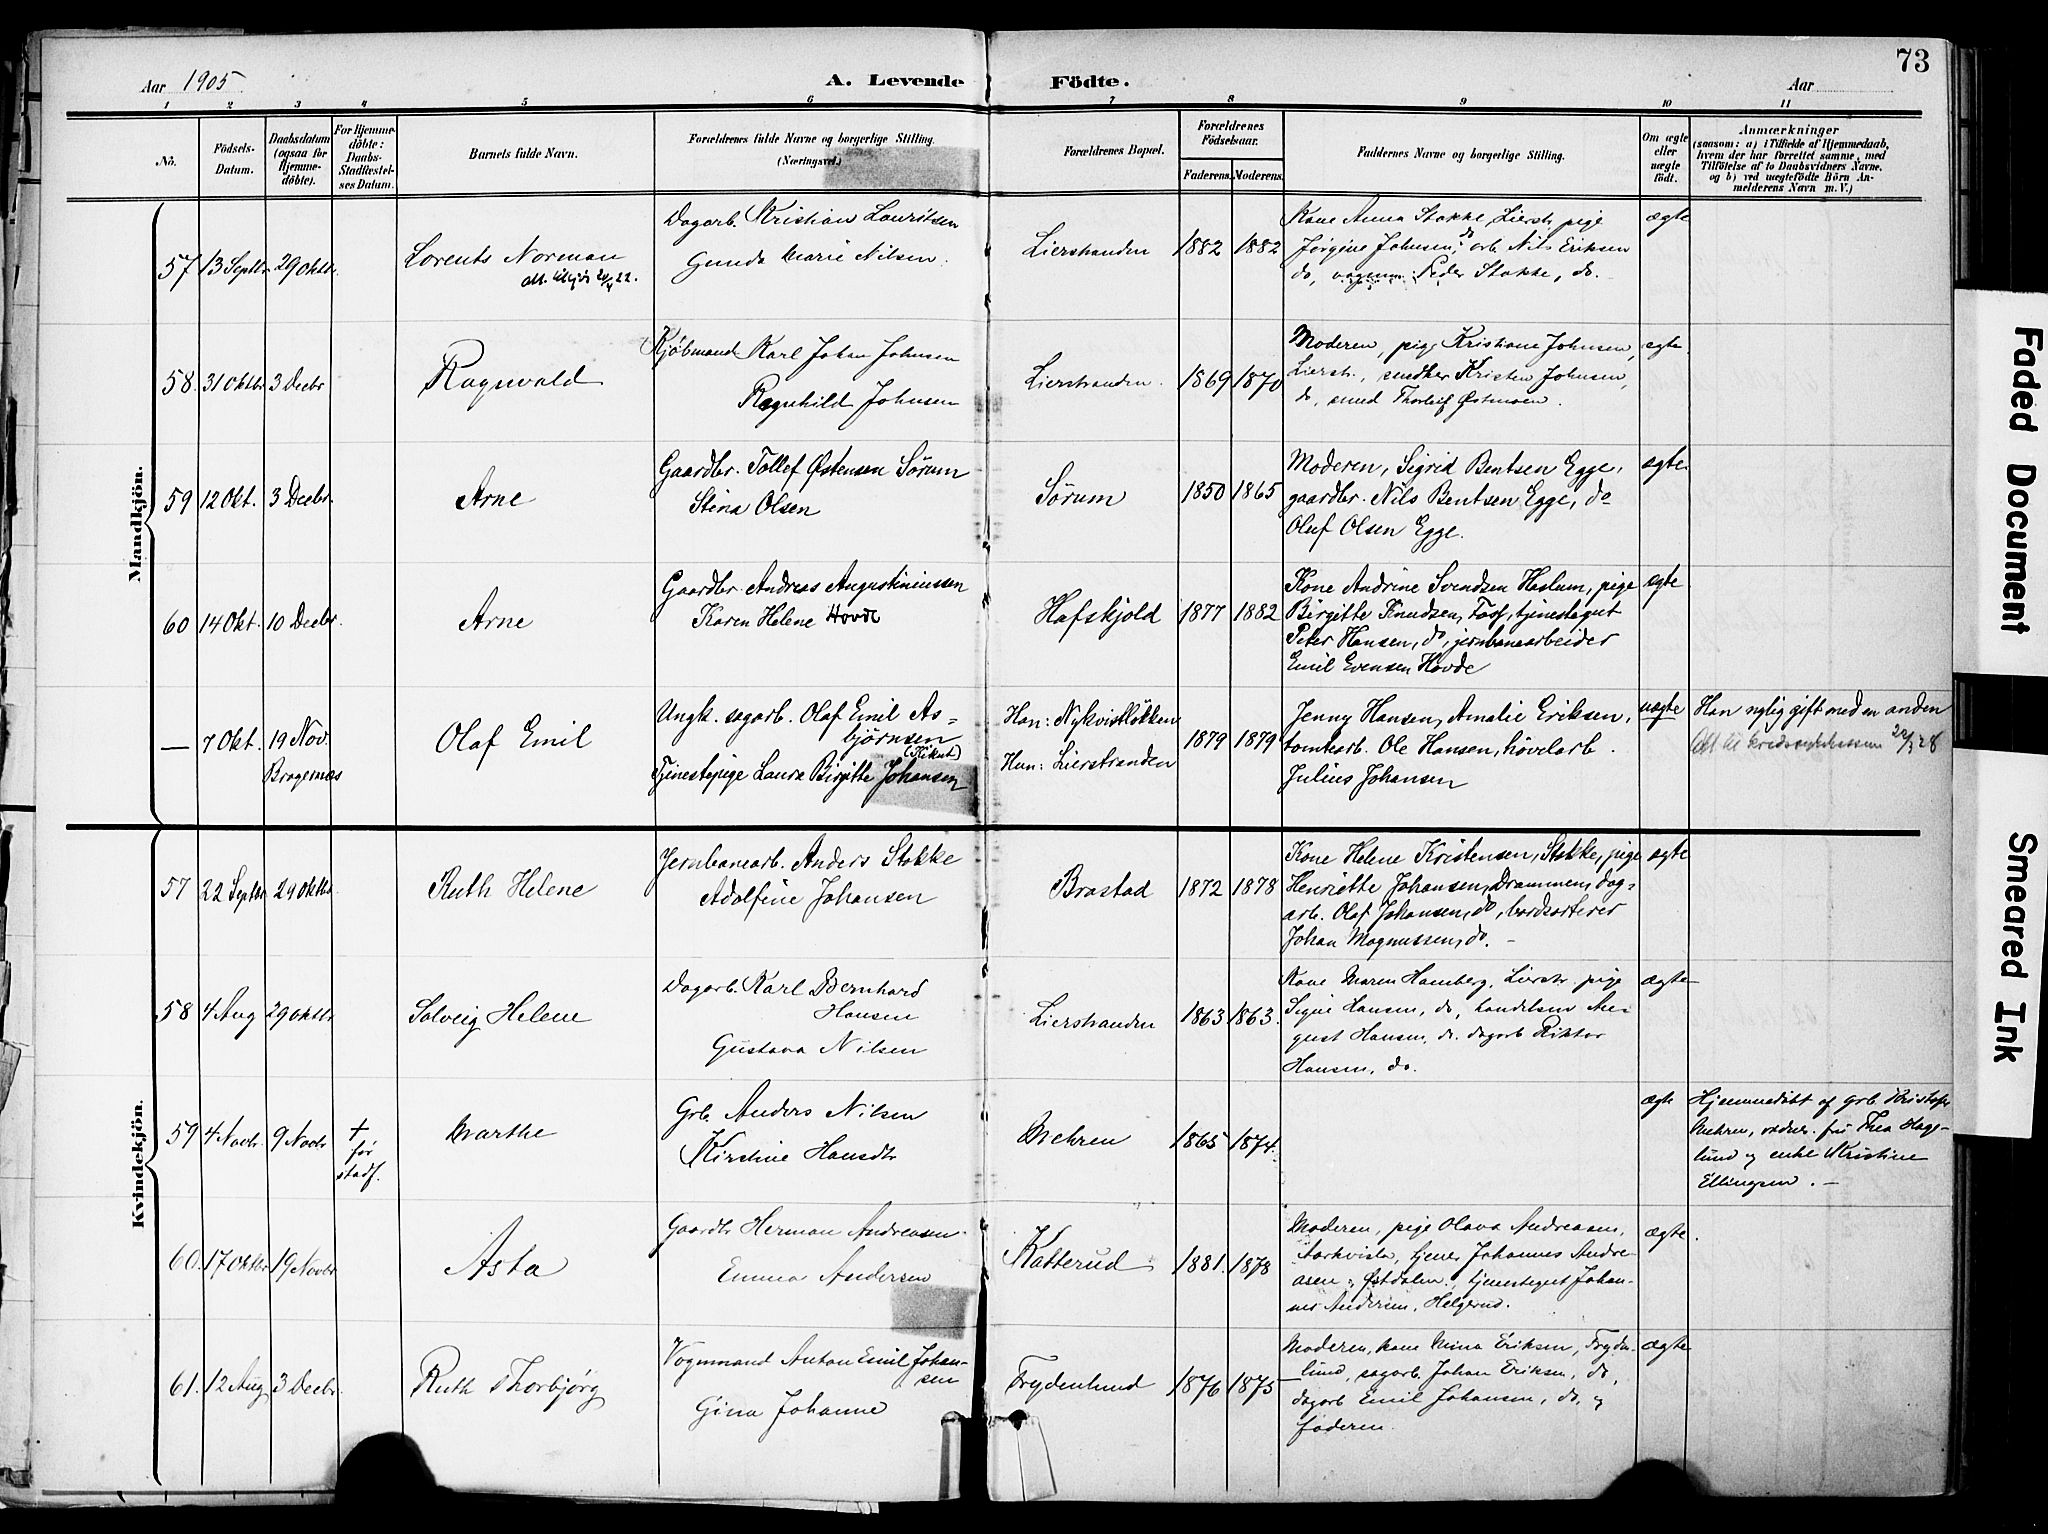 73
Aar 1905
A. Levende Födte.
Aar
1 2 3 4 5 6 7 8 9 10 11
No.
Födsels-Datum.
Daabsdatum (ogsaa for Hjemme-döbte).
For Hjemme-döbte: Daabs-Stadfæstel-ses Datum.
Barnets fulde Navn.
Forældrenes fulde Navne og borgerlige Stilling.
(Næringsvei.)
Forældrenes Bopæl.
Forældrenes Födselsaar.
Faderens. Moderens.
Faddernes Navne og borgerlige Stilling.
Om ægte eller uægte födt.
Anmærkninger
(saasom: a) i Tilfælde af Hjemmedaab,
hvem der har forrettet samme, med
Tilföielse af to Daabsvidners Navne,
og b) ved uægtefödte Börn An-
melderens Navn m. V.)
Mandkjön.
57 13 Septbr 29 oktbr. Lorents Norman
att. 20/4 22.
Dagarb. Kristian Lauritsen
Gunda Marie Nilsen.
Lierstranden 1882 1882
Kone Anna Stokke, Lierstr, pige
Jørgine Johnsen, do arb. Nils Eriksen
do, vognm. Peder Stokke, do.
ægte
58. 31 oktbr 3 Decbr Ragnvald
Kjøbmand Karl Johan Johnsen
Ragnhild Johnsen
Lierstranden. 1869 1870
Moderen, pige Kristiane Johnsen,
Lierstr., snedker Kristen Johnsen,
do, smed Thorleif Østmoen.
ægte
59 12 Okt. 3 Decbr. Arne
Gaardbr. Tollef Østensen Sørum
Stina Olsen
Sørum 1850 1865
Moderen, Sigrid Bentsen Egge,
gaardbr. Nils Bentsen Egge, do
Oluf Olsen Egge.
ægte
60 14 Okt. 10 Decbr. Arne
Gaardbr. Andreas Augustiniussen
Karen Helene Hovde
Hafskjold 1877 1882
Kone Andrine Svendsen Haslum, pige
Birgitte Knudsen, Foss, tjenestegut
Peter Hansen, do, jernbanearbeider
Emil Evensen Hovde
ægte
— 7 Okt. 19 Nov. Bragernæs Olaf Emil
Ungk. sagarb. Olaf Emil As=
bjørnsen
Tjenestepige Laura Birgitte Johansen
Han: Nykvistløkken
Hun: Lierstranden
1879 1879
Jenny Hansen, Amalie Eriksen,
tomtearb. Ole Hansen, høvelarb.
Julius Johansen
uægte
Han nylig gift med en anden
Att. til 28
Kvindekjön.
57 22 Septbr 29 oktbr. Ruth Helene
Jernbanearb. Anders Stokke
Adolfine Johansen
Brastad 1872 1878
Kone Helene Kristensen, Stokke, pige
Henriette Johansen, Drammen, dag=
arb. Olaf Johansen, do, bordsorterer
Johan Magnussen, do. –
ægte
58 4 Aug 29 oktbr Solveig Helene
Dagarb. Karl Bernhard
Hansen
Gustava Nilsen
Lierstranden 1863 1863.
Kone Maren Hamberg, Lierstr, pige
Signe Hansen, do, handelsm Au-
gust Hansen, do. dagarb Viktor
Hansen, do.
ægte
59 4 Novbr. 9 Novbr + før stadf. Marthe
Grb. Anders Nilsen
Kirstine Hansdtr
Mehren 1865 1874.
ægte
Hjemmedøbt af grb. Kristofer
Mehren, vidner. fru Thea Hage-
lund og enke Kristine
Ellingsen. –
60. 17 Oktbr. 19 Novbr Asta
Gaardbr Herman Andreasen
Emma Andersen
Katterud 1881. 1878
Moderen, pige Olava Andreasen,
tjener Johannes Andre-
asen, Østdalen, tjenestegut Johan-
nes Andersen, Helgerud.
ægte.
61. 12 Aug 3 Decbr. Ruth Thorbjørg
Vognmand Anton Emil Johan-
sen
Gina Johanne
Frydenlund 1876 1875
Moderen, kone Mina Eriksen, Fryden-
lund, sagarb. Johan Eriksen, do,
dagarb Emil Johansen, do. og
faderen.
ægte
Faded Document
Smeared Ink